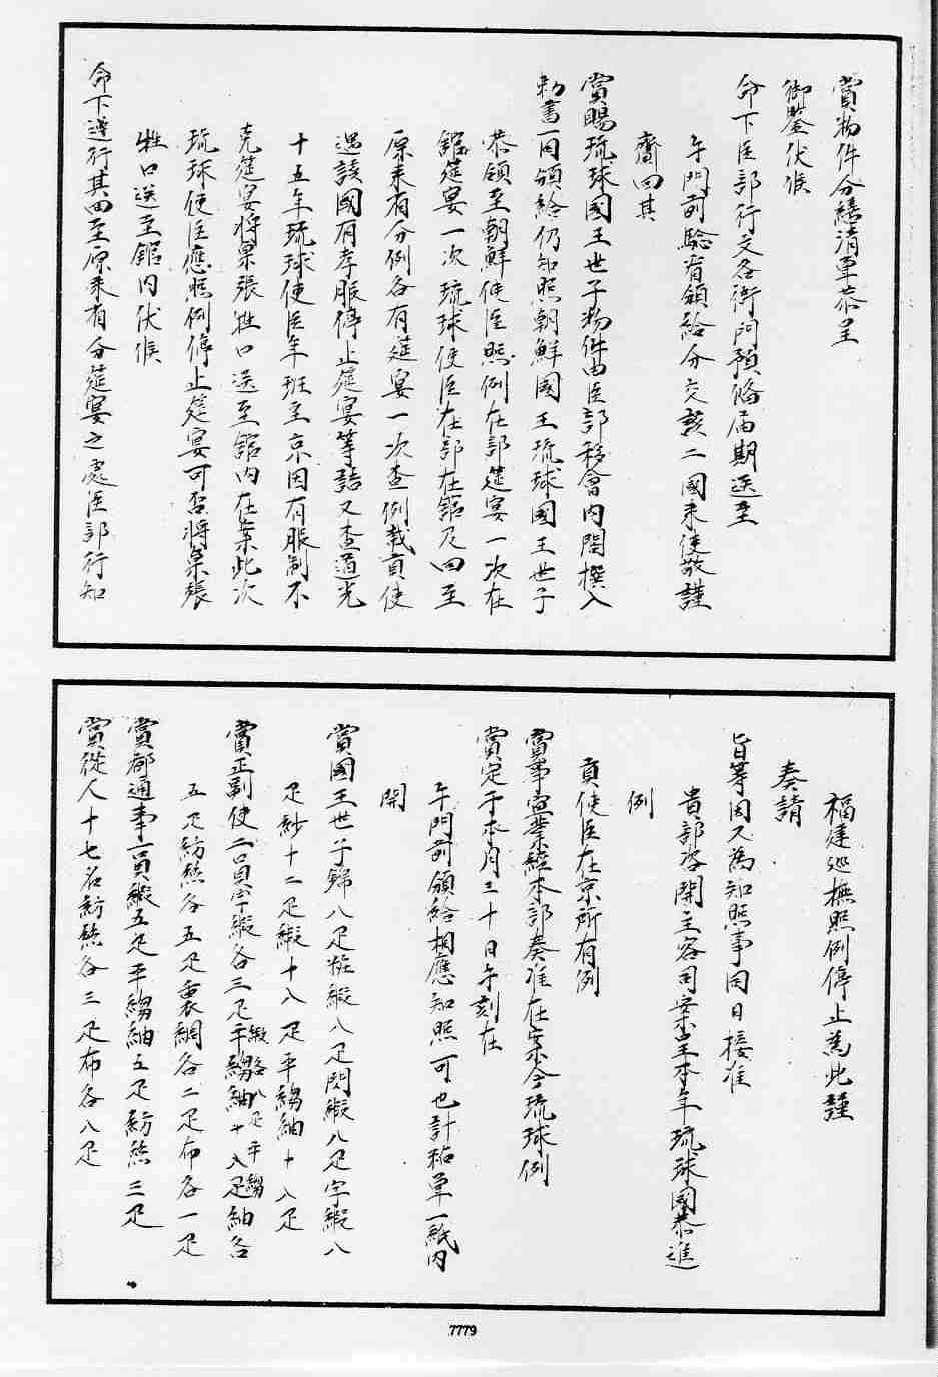 賞物件分繕清單恭呈
御鑒伏候
命下臣部行文各衙門預備屆期送至
午門前驗看頒給分交該二國來使敬謹
齎回其
賞賜琉球國王世子物件由臣部移會內閣撰入
勅書一同頒給仍知照朝鮮國王琉球國王世子
恭領至朝鮮使臣照例在部筵宴一次在
館筵宴一次琉球使臣在部在館及回至
原來省分例各有筵宴一次查例載貢使
遇該國有孝服停止筵宴等語又查道光
十五年琉球使臣年班至京因有服制不
克筵宴將桌張牲口送至館內在案此次
琉球使臣應照例停止筵宴可否將桌張
牲口送至館內伏候
命下遵行其回至原來省分筵宴之處臣部行知
福建巡撫照例停止為此謹
奏請
旨等因又為知照事同日接准
貴部咨開主客司案呈本年琉球國恭進
例
貢使臣在京所有例
賞事宜業經本部奏准在案今琉球例
賞定于本月三十日午刻在
午門前頒給相應知照可也計粘單一紙內
開
賞國王世子錦八疋粧緞八疋閃緞八疋字緞八
疋紗十二疋緞十八疋平縐紬十八疋
賞正副使二員字緞各三疋平縐紬十八疋紬各
緞各八疋平縐
五疋紡絲各五疋裏綢各二疋布各一疋
賞都通事一員緞五疋平縐紬五疋紡絲三疋
賞從人十七名紡絲各三疋布各八疋
7779